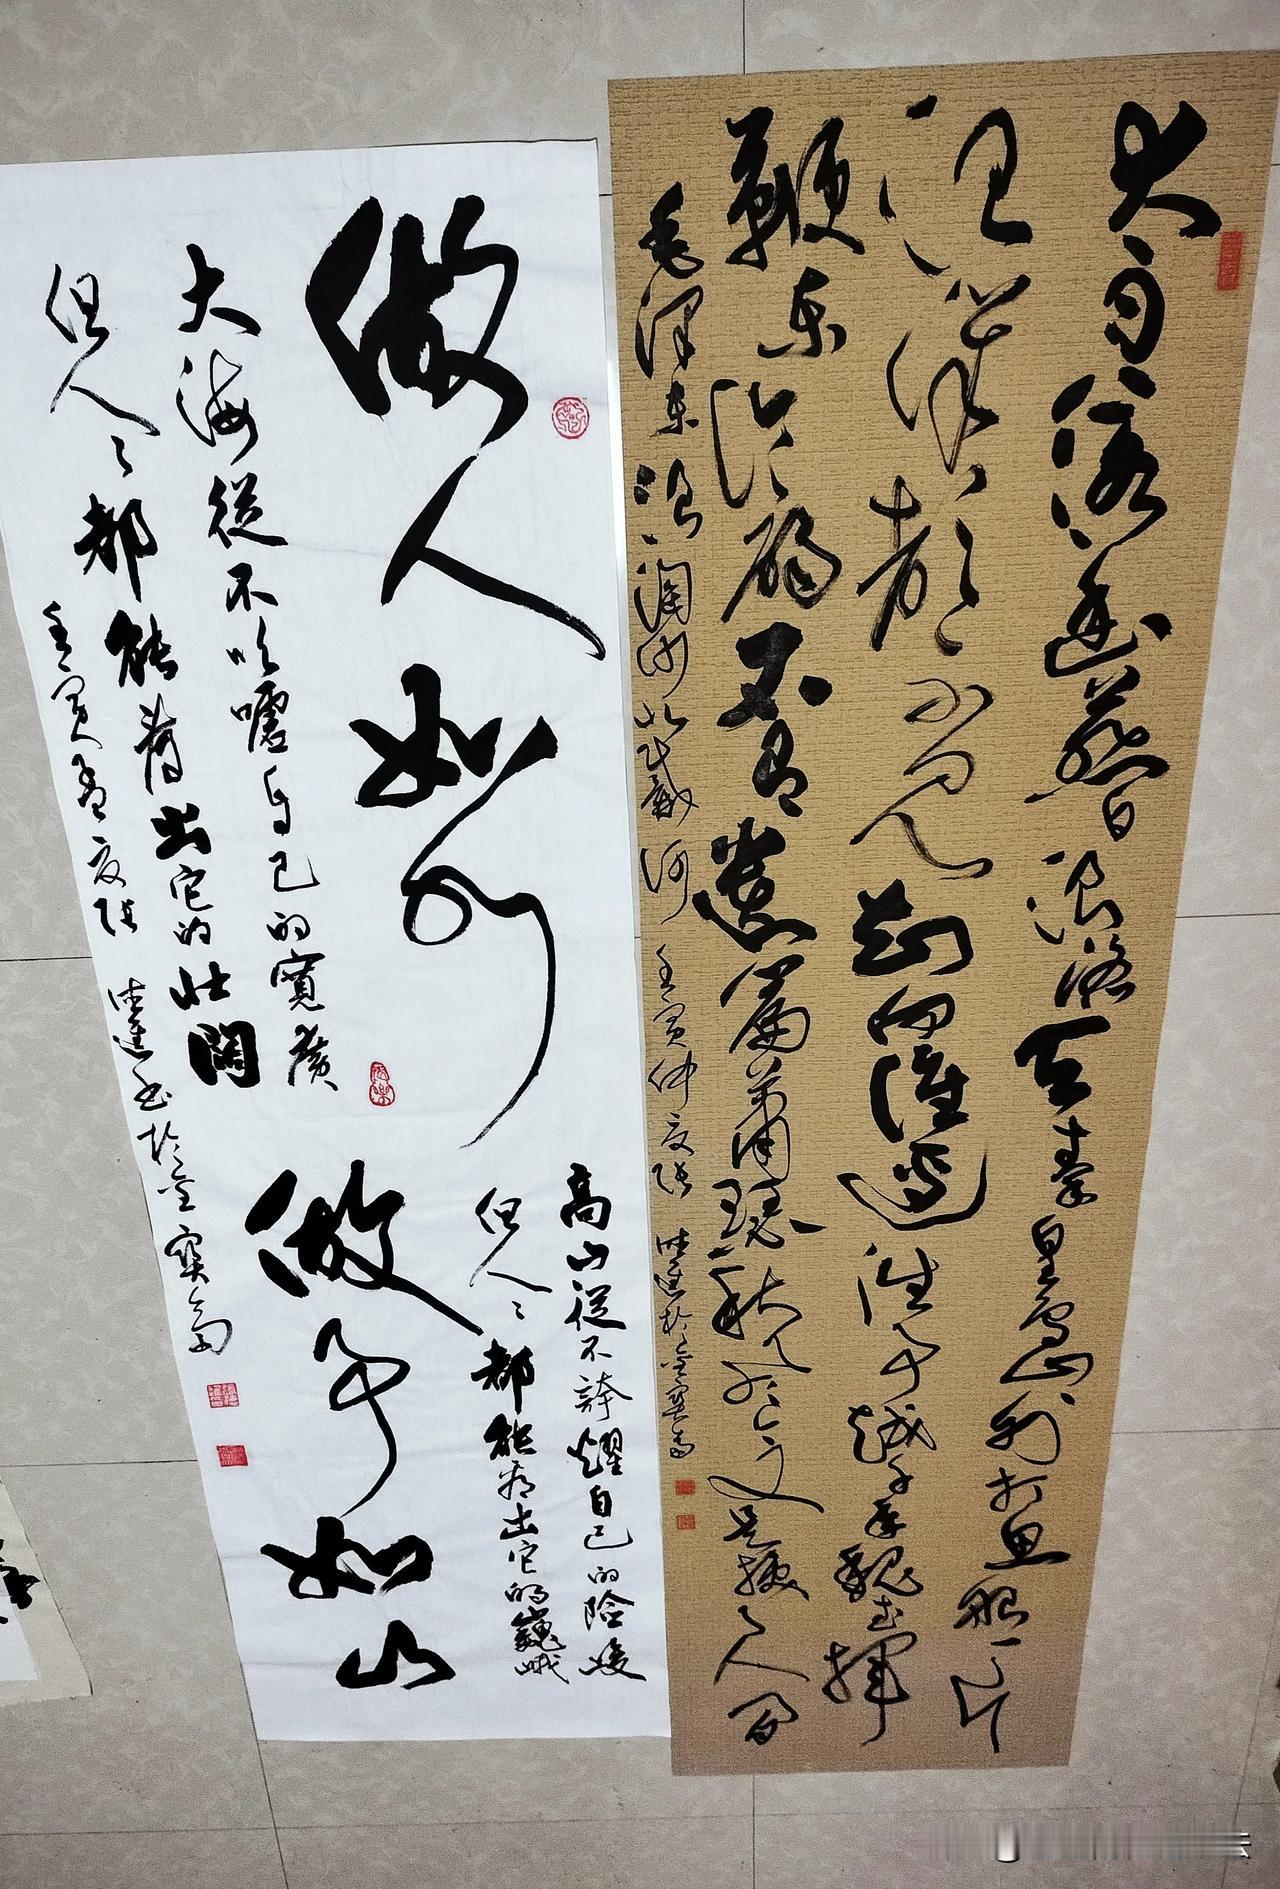 大雨落幽燕白浪滔天秦皇島外打魚船一片
汪洋都不見知向誰邊往事越千年魏武揮
鞭東臨碣石有遺篇蕭瑟秋風今又是換了人間
毛澤東浪淘沙北戴河 壬寅仲夏張 德進於金寶齋
做人如水
大海從不吹噓自己的寬廣
但人々都能看出它的壯闊
做事如山
高山從不誇耀自己的險峻
但人々都能看出它的巍峨
壬寅孟夏張 德進書於金寶齋